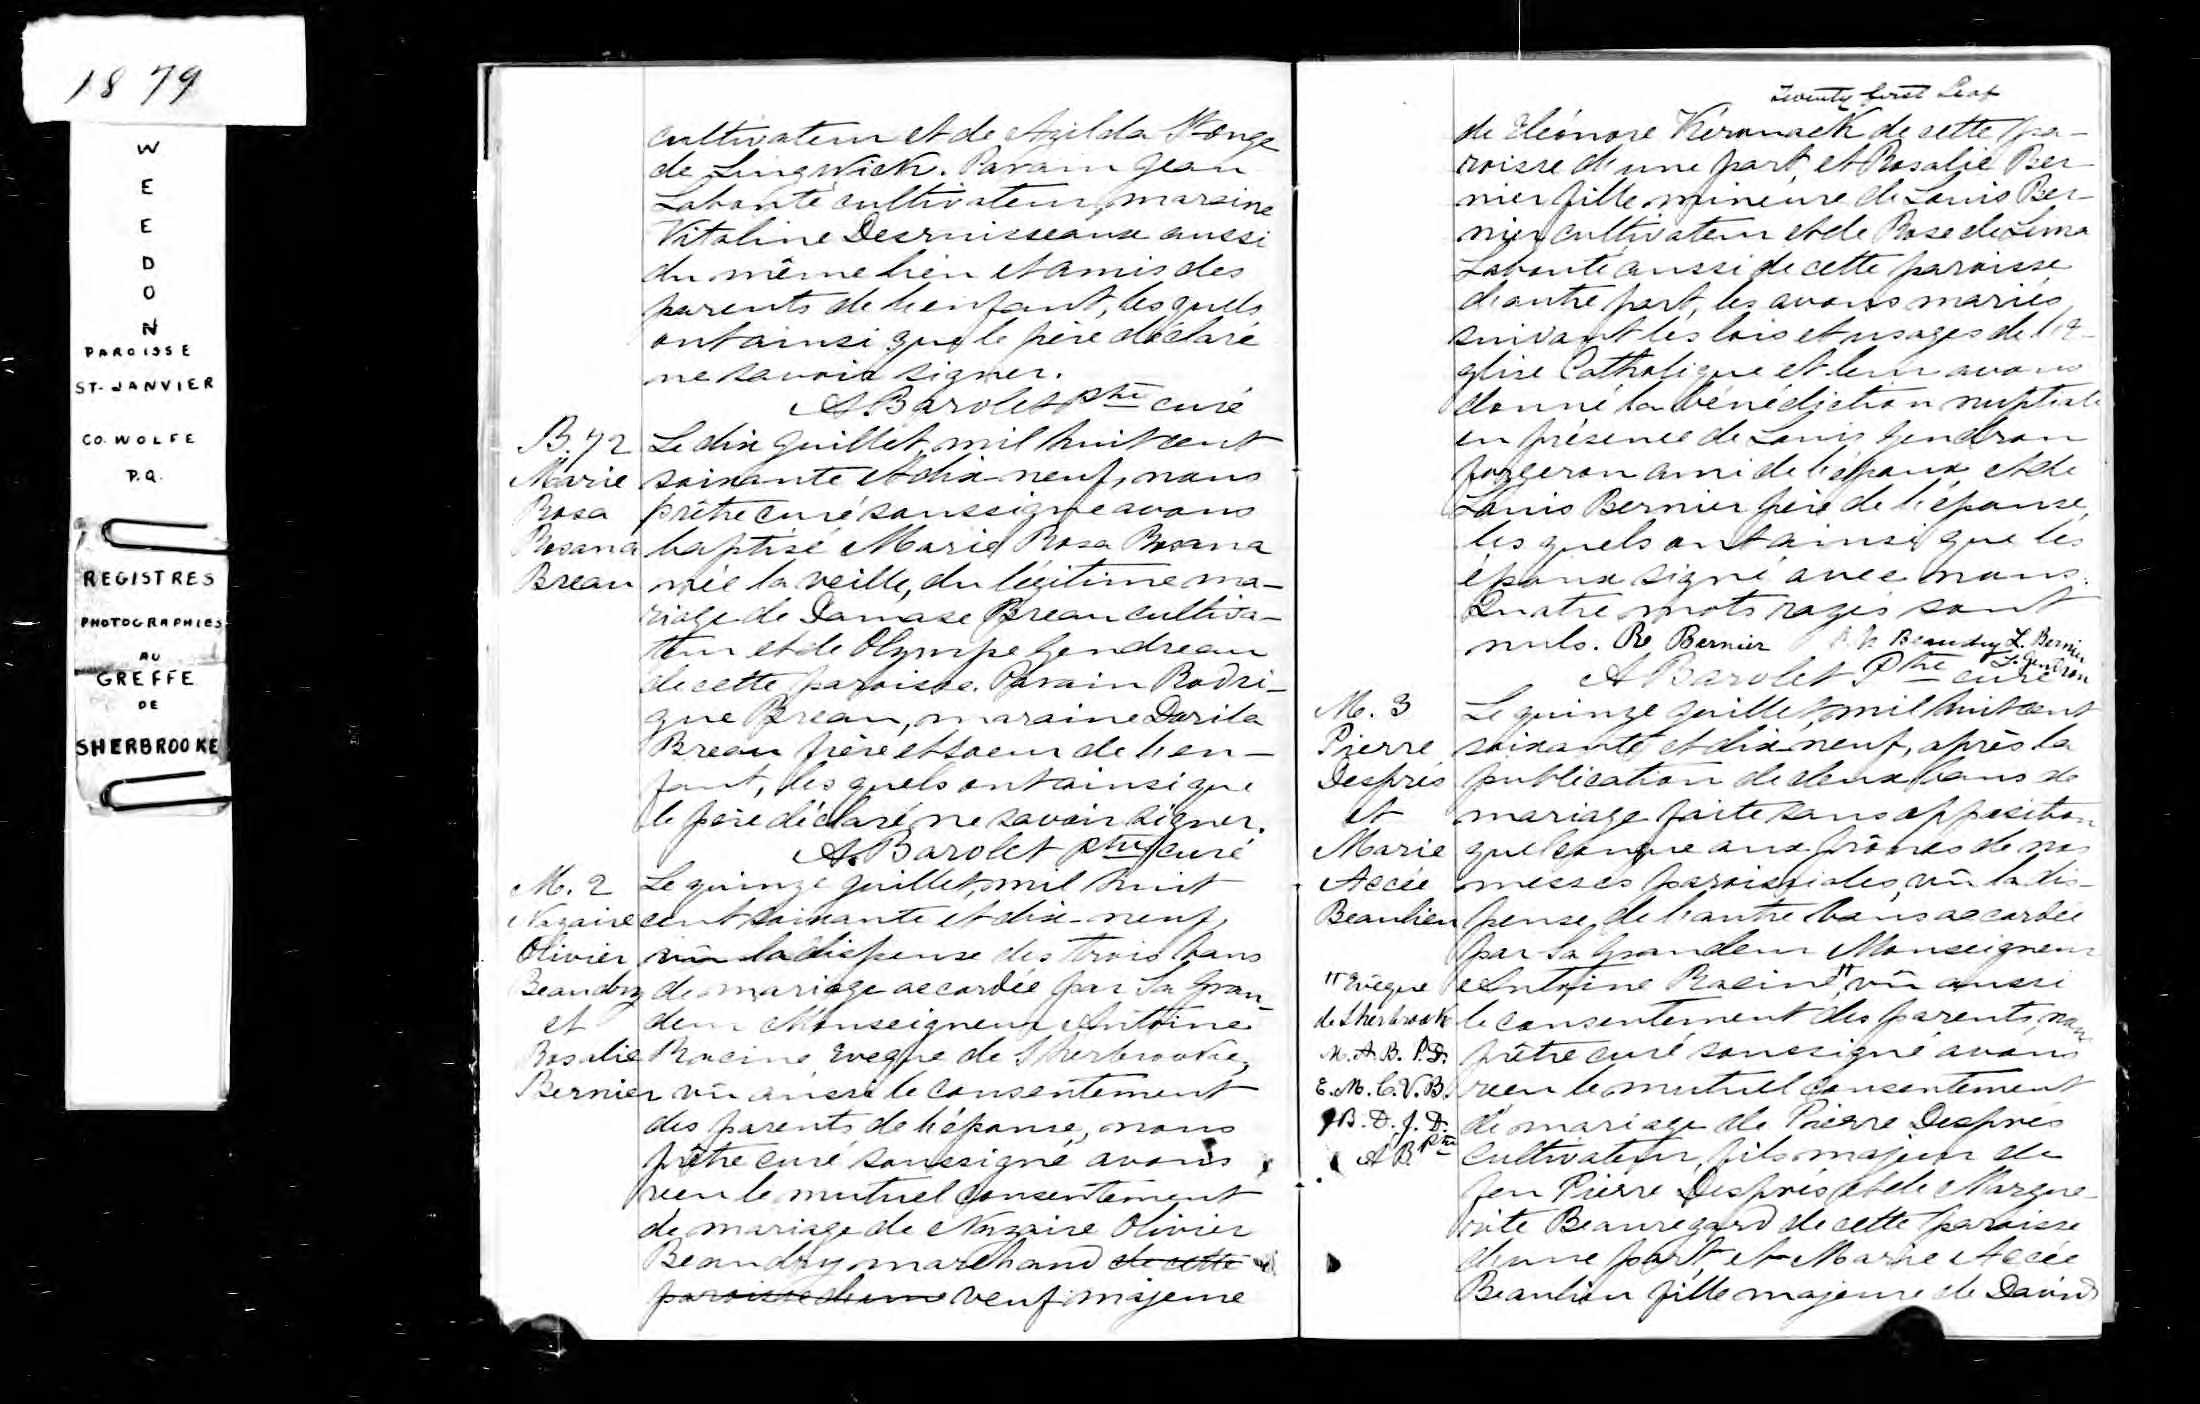 1879
W
E
E
D
O
N
PAROISSE
ST-JANVIER
CO. WOLFE
P.Q.
REGISTRES
PHOTOGRAPHIES
AU
GREFFE
DE
SHERBROOKE
cultivateur et de Azilda St Onge
de Lingwick. Parain Jean
Labonté cultivateur, maraine
Vitaline Desruisseaux aussi
du même lieu et amis des
parents de l'enfant, les quels
ont ainsi que le père déclaré
ne savoir signer.
A. Barolet Ptre curé
B. 72
Marie
Rosa
Rosana
Breau
Le dix Juillet, mil huit cent
soixante et dix neuf, nous
prêtre curé soussigné avons
baptisé Marie Rosa Rosana
née la veille, du légitime ma-
riage de Damase Breau cultiva-
teur et de Olympe Gendreau
de cette paroisse. Parain Rodri-
gue Breau, maraine Dorila
Breau frère et soeur de l'en-
fant, les quels ont ainsi que
le père déclaré ne savoir signer.
A. Barolet Ptre curé
M. 2
Nazaire
Olivier
Beaudry
et
Rosalie
Bernier
Le quinze Juillet, mil huit
cent soixante et dix-neuf,
vû la dispense des trois bans
de mariage accordée par Sa Gran-
deur Monseigneur Antoine
Racine Evêque de Sherbrooke,
vû aussi le consentement
des parents de l'épouse, nous
prêtre curé soussigné avons
reçu le mutuel consentement
de mariage de Nazaire Olivier
Beaudry marchand de cette
paroisse d'une veuf majeure
Twenty first Leaf
de Eléonore Kérouack de cette pa-
roisse d'une part, et Rosalie Ber-
nier fille mineure de Louis Ber-
nier cultivateur et de Rose de Lima
Labonté aussi de cette paroisse
d'autre part, les avons mariés
suivant les lois et usages de l'E-
glise Catholique et leur avons
donné la bénédiction nuptiale
en présence de Louis Gendron
forgeron ami de l'époux, et de
Louis Bernier père de l'épouse,
les quels ont ainsi que les
époux signé avec nous.
Quatre mots rayés sont
nuls. Re Bernier Beaudry L. Bernier
L. Gendron
A Barolet Ptre curé
M. 3
Pierre
Després
et
Marie
Accée
Beaulieu
"Evêque
de Sherbrooke
M. A. B. P. D.
E. M. C. V. B.
J B. D. J. D.
A B Ptre
Le quinze Juillet, mil huit cent
soixante et dix neuf, après la
publication de deux bans de
mariage faite sans opposition
quelconque aux prônes de nos
messes paroissiales, vû la dis-
pense de l'autre bans accordée
par Sa Grandeur Monseigneur
Antoine Racine", vû aussi
le consentement des parents, nous
prêtre curé soussigné avons
reçu le mutuel consentement
de mariage de Pierre Després
cultivateur, fils majeur de
feu Pierre Després et de Margue-
rite Beauregard de cette paroisse
d'une part, et Marie Accée
Beaulieu fille majeure de David